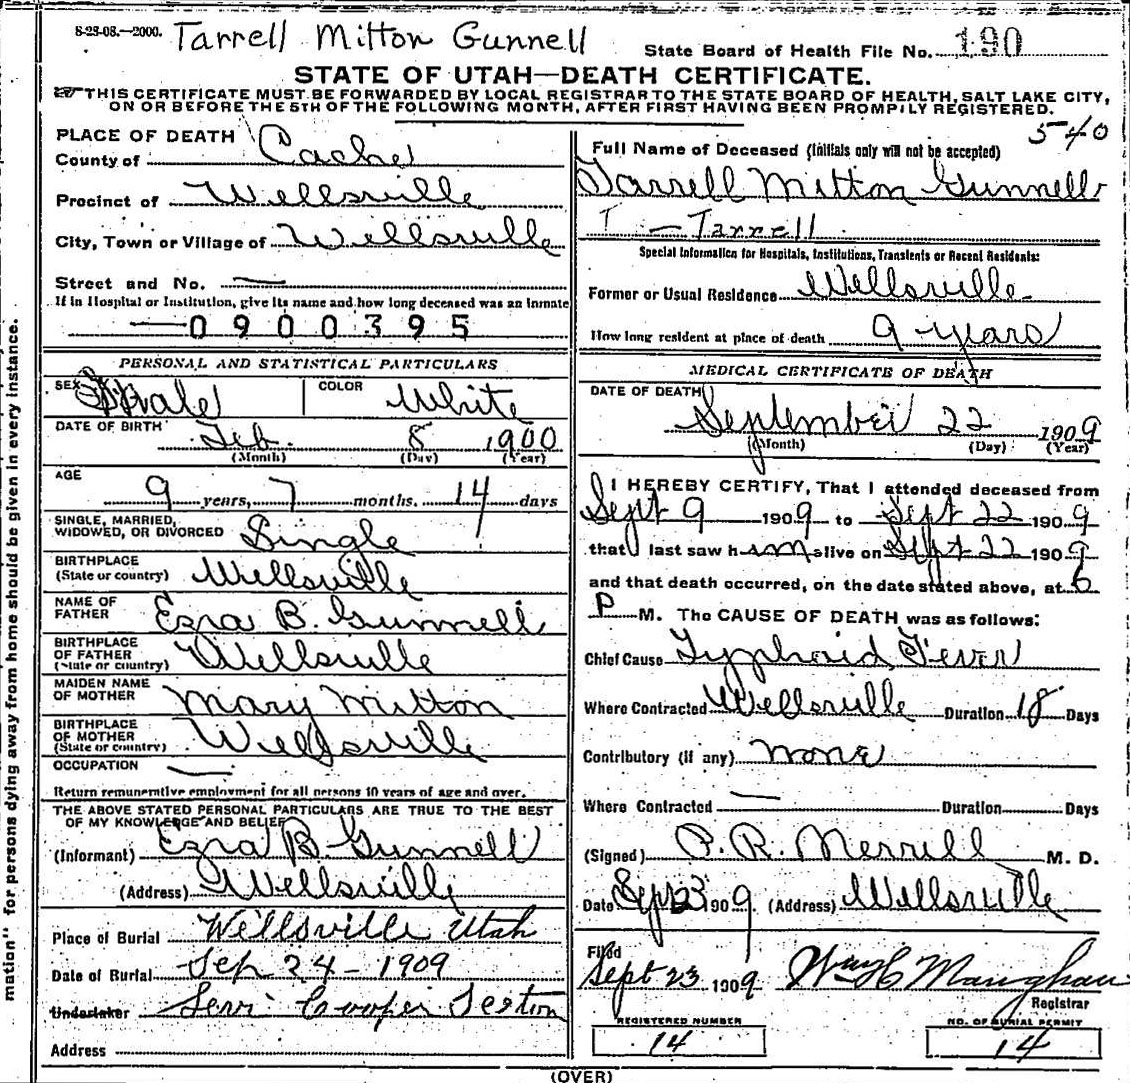 8-23-08.—2000. Tarrell Mitton Gunnell
State Board of Health File No. 190
STATE OF UTAH—DEATH CERTIFICATE.
THIS CERTIFICATE MUST BE FORWARDED BY LOCAL REGISTRAR TO THE STATE BOARD OF HEALTH, SALT LAKE CITY,
ON OR BEFORE THE 5TH OF THE FOLLOWING MONTH, AFTER FIRST HAVING BEEN PROMPTLY REGISTERED.
540
PLACE OF DEATH
County of Cache
Precinct of Wellsville
City, Town or Village of Wellsville
Street and No. —
If in Hospital or Institution, give its name and how long deceased was an inmate
—0900395
Full Name of Deceased (Initials only will not be accepted)
Tarrell Mitton Gunnell
T — Tarrell
Special Information for Hospitals, Institutions, Transients or Recent Residents:
Former or Usual Residence Wellsville
How long resident at place of death 9 years
PERSONAL AND STATISTICAL PARTICULARS
SEX Male COLOR White
DATE OF BIRTH Feb. 8 1900
(Month) (Day) (Year)
AGE
9 years, 7 months. 14 days
SINGLE, MARRIED,
WIDOWED, OR DIVORCED Single
BIRTHPLACE
(State or country) Wellsville
NAME OF
FATHER Ezra B. Gunnell
BIRTHPLACE
OF FATHER
(State or country) Wellsville
MAIDEN NAME
OF MOTHER Mary Mitton
BIRTHPLACE
OF MOTHER
(State or country) Wellsville
OCCUPATION —
Return remunerative employment for all persons 10 years of age and over.
THE ABOVE STATED PERSONAL PARTICULARS ARE TRUE TO THE BEST
OF MY KNOWLEDGE AND BELIEF
(Informant) Ezra B. Gunnell
(Address) Wellsville
Place of Burial Wellsville Utah
Date of Burial Sep 24 - 1909
Undertaker Levi Cooper Sexton
Address
MEDICAL CERTIFICATE OF DEATH
DATE OF DEATH
September 22 1909
(Month) (Day) (Year)
I HEREBY CERTIFY, That I attended deceased from
Sept 9 1909 to Sept 22 1909
that I last saw him alive on Sept 22 1909
and that death occurred, on the date stated above, at 6
P M. The CAUSE OF DEATH was as follows:
Chief Cause Typhoid Fever
Where Contracted Wellsville Duration 18 Days
Contributory (if any) none
Where Contracted — Duration Days
(Signed) P. R. Merrill M. D.
Date Sept 23 1909 (Address) Wellsville
Filed
Sept 23 1909 Wm H Maughan
Registrar
REGISTERED NUMBER
14
NO. OF BURIAL PERMIT
14
(OVER)
mation" for persons dying away from home should be given in every instance.